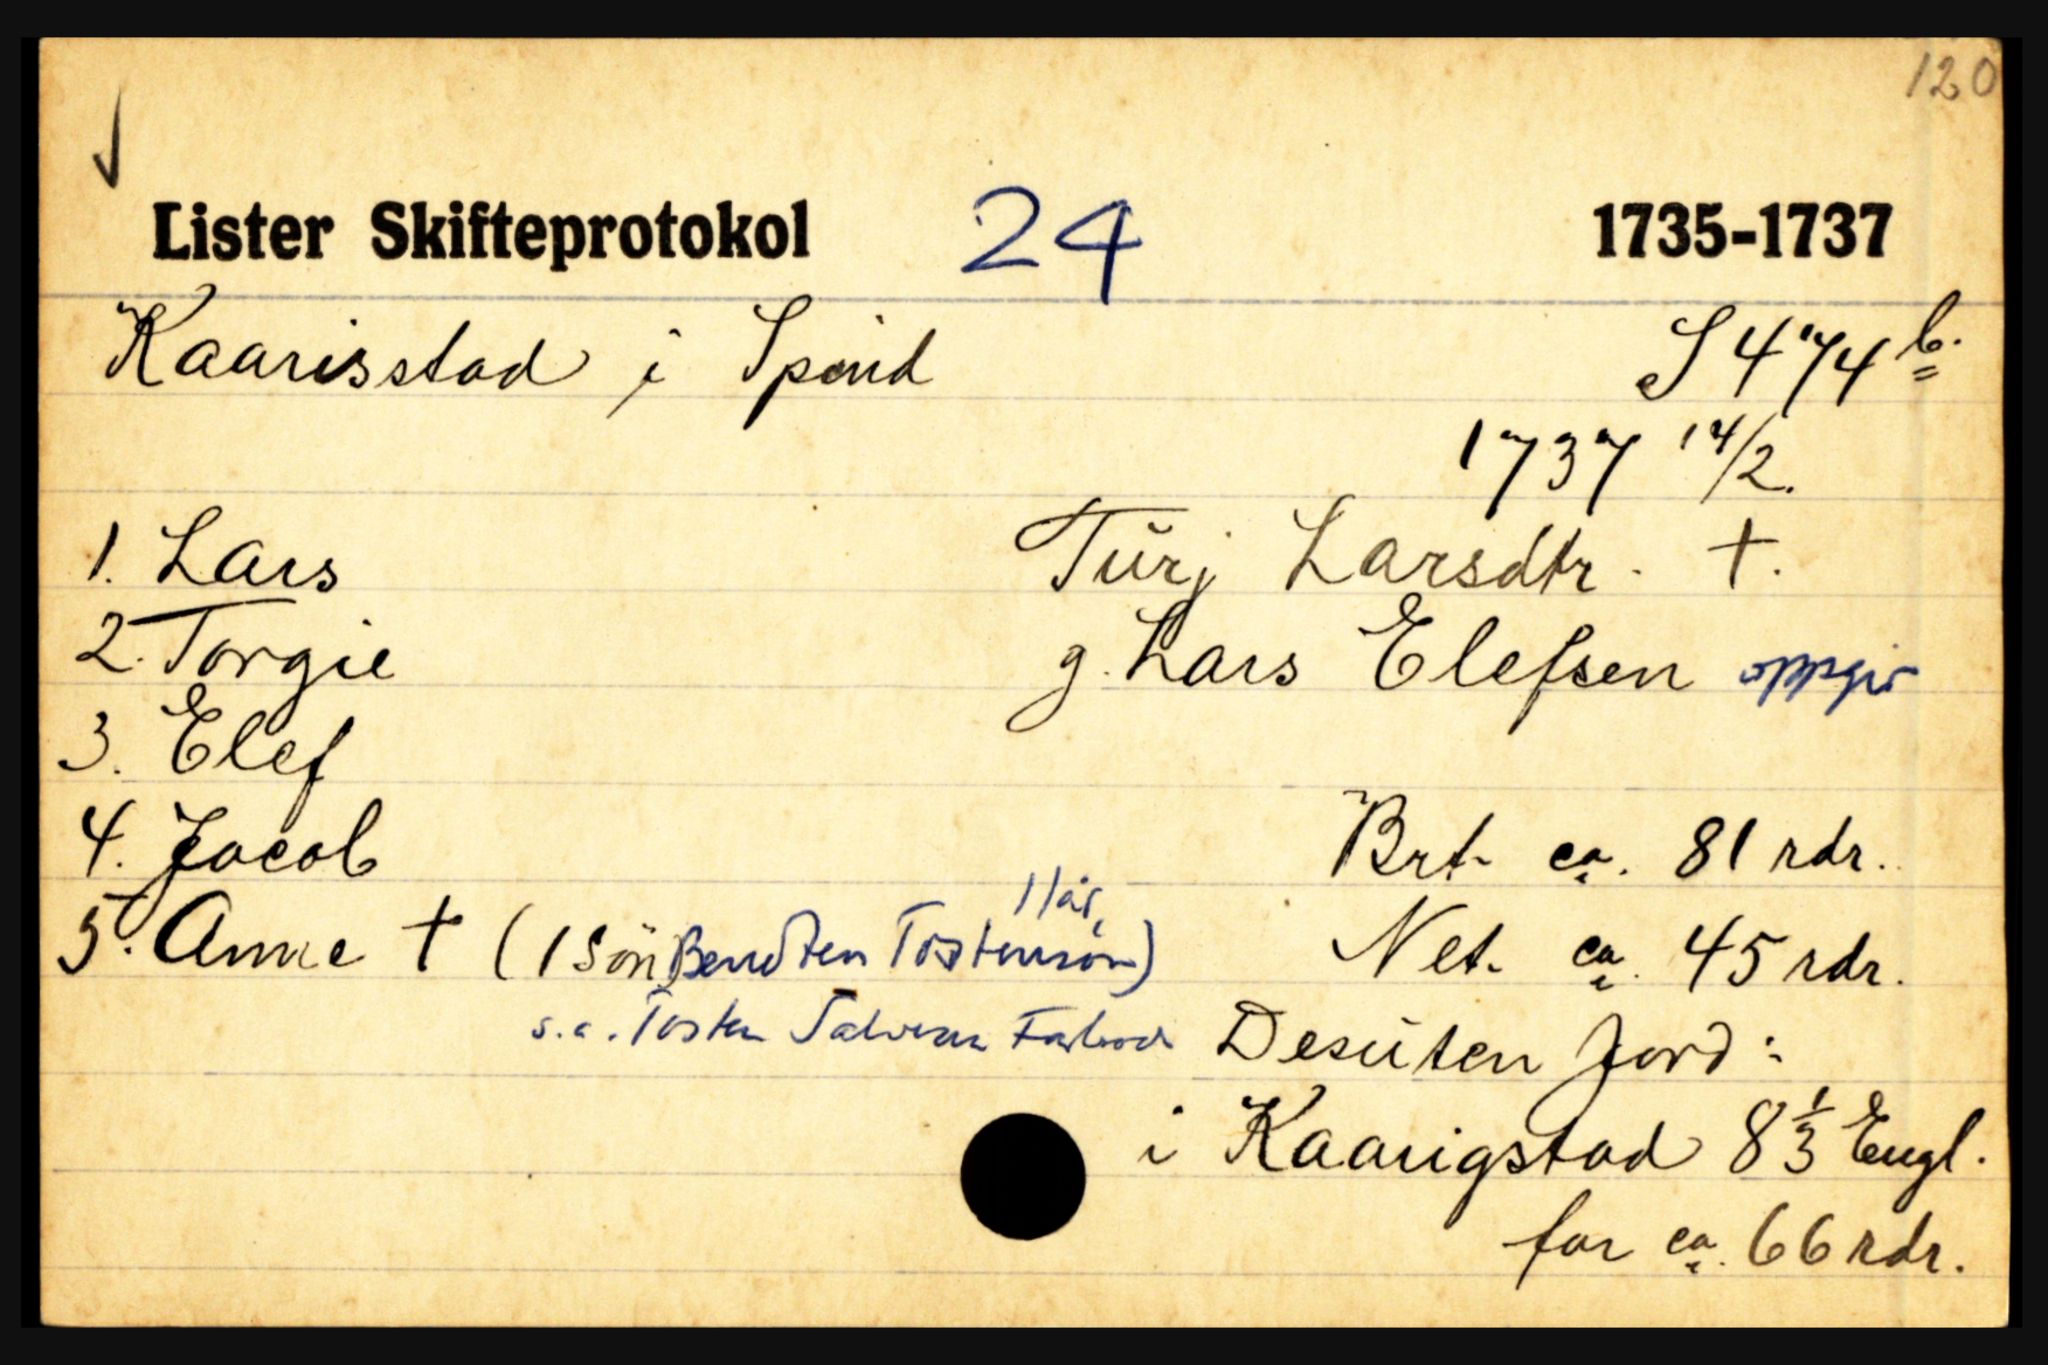 120
Lister Skifteprotokol 24 1735-1737
Kaarisstad i Spind S 474 b.
1737 14/2.
1. Lars Turj Larsdtr. †.
2. Torgie g. Lars Elefsen oppgir
3. Elef
4. Jacob Brt. ca. 81 rdr.
11 år,
5. Anne † (1 sön Bendten Tostensøn) Net. ca. 45 rdr.
s.a. Tosten Desuten Jord:
i Kaarigstad 8 1/3 Engl.
for ca. 66 rdr.